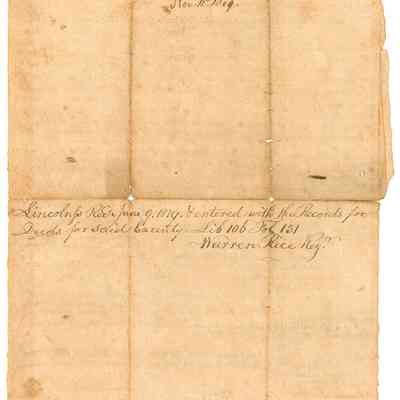 Nov. 15. 1809.
Lincoln ss Rec.d June 9. 1819. & entered with the Records for
Deeds for said County Lib 106 Fol 131
Warren Rice Regr.